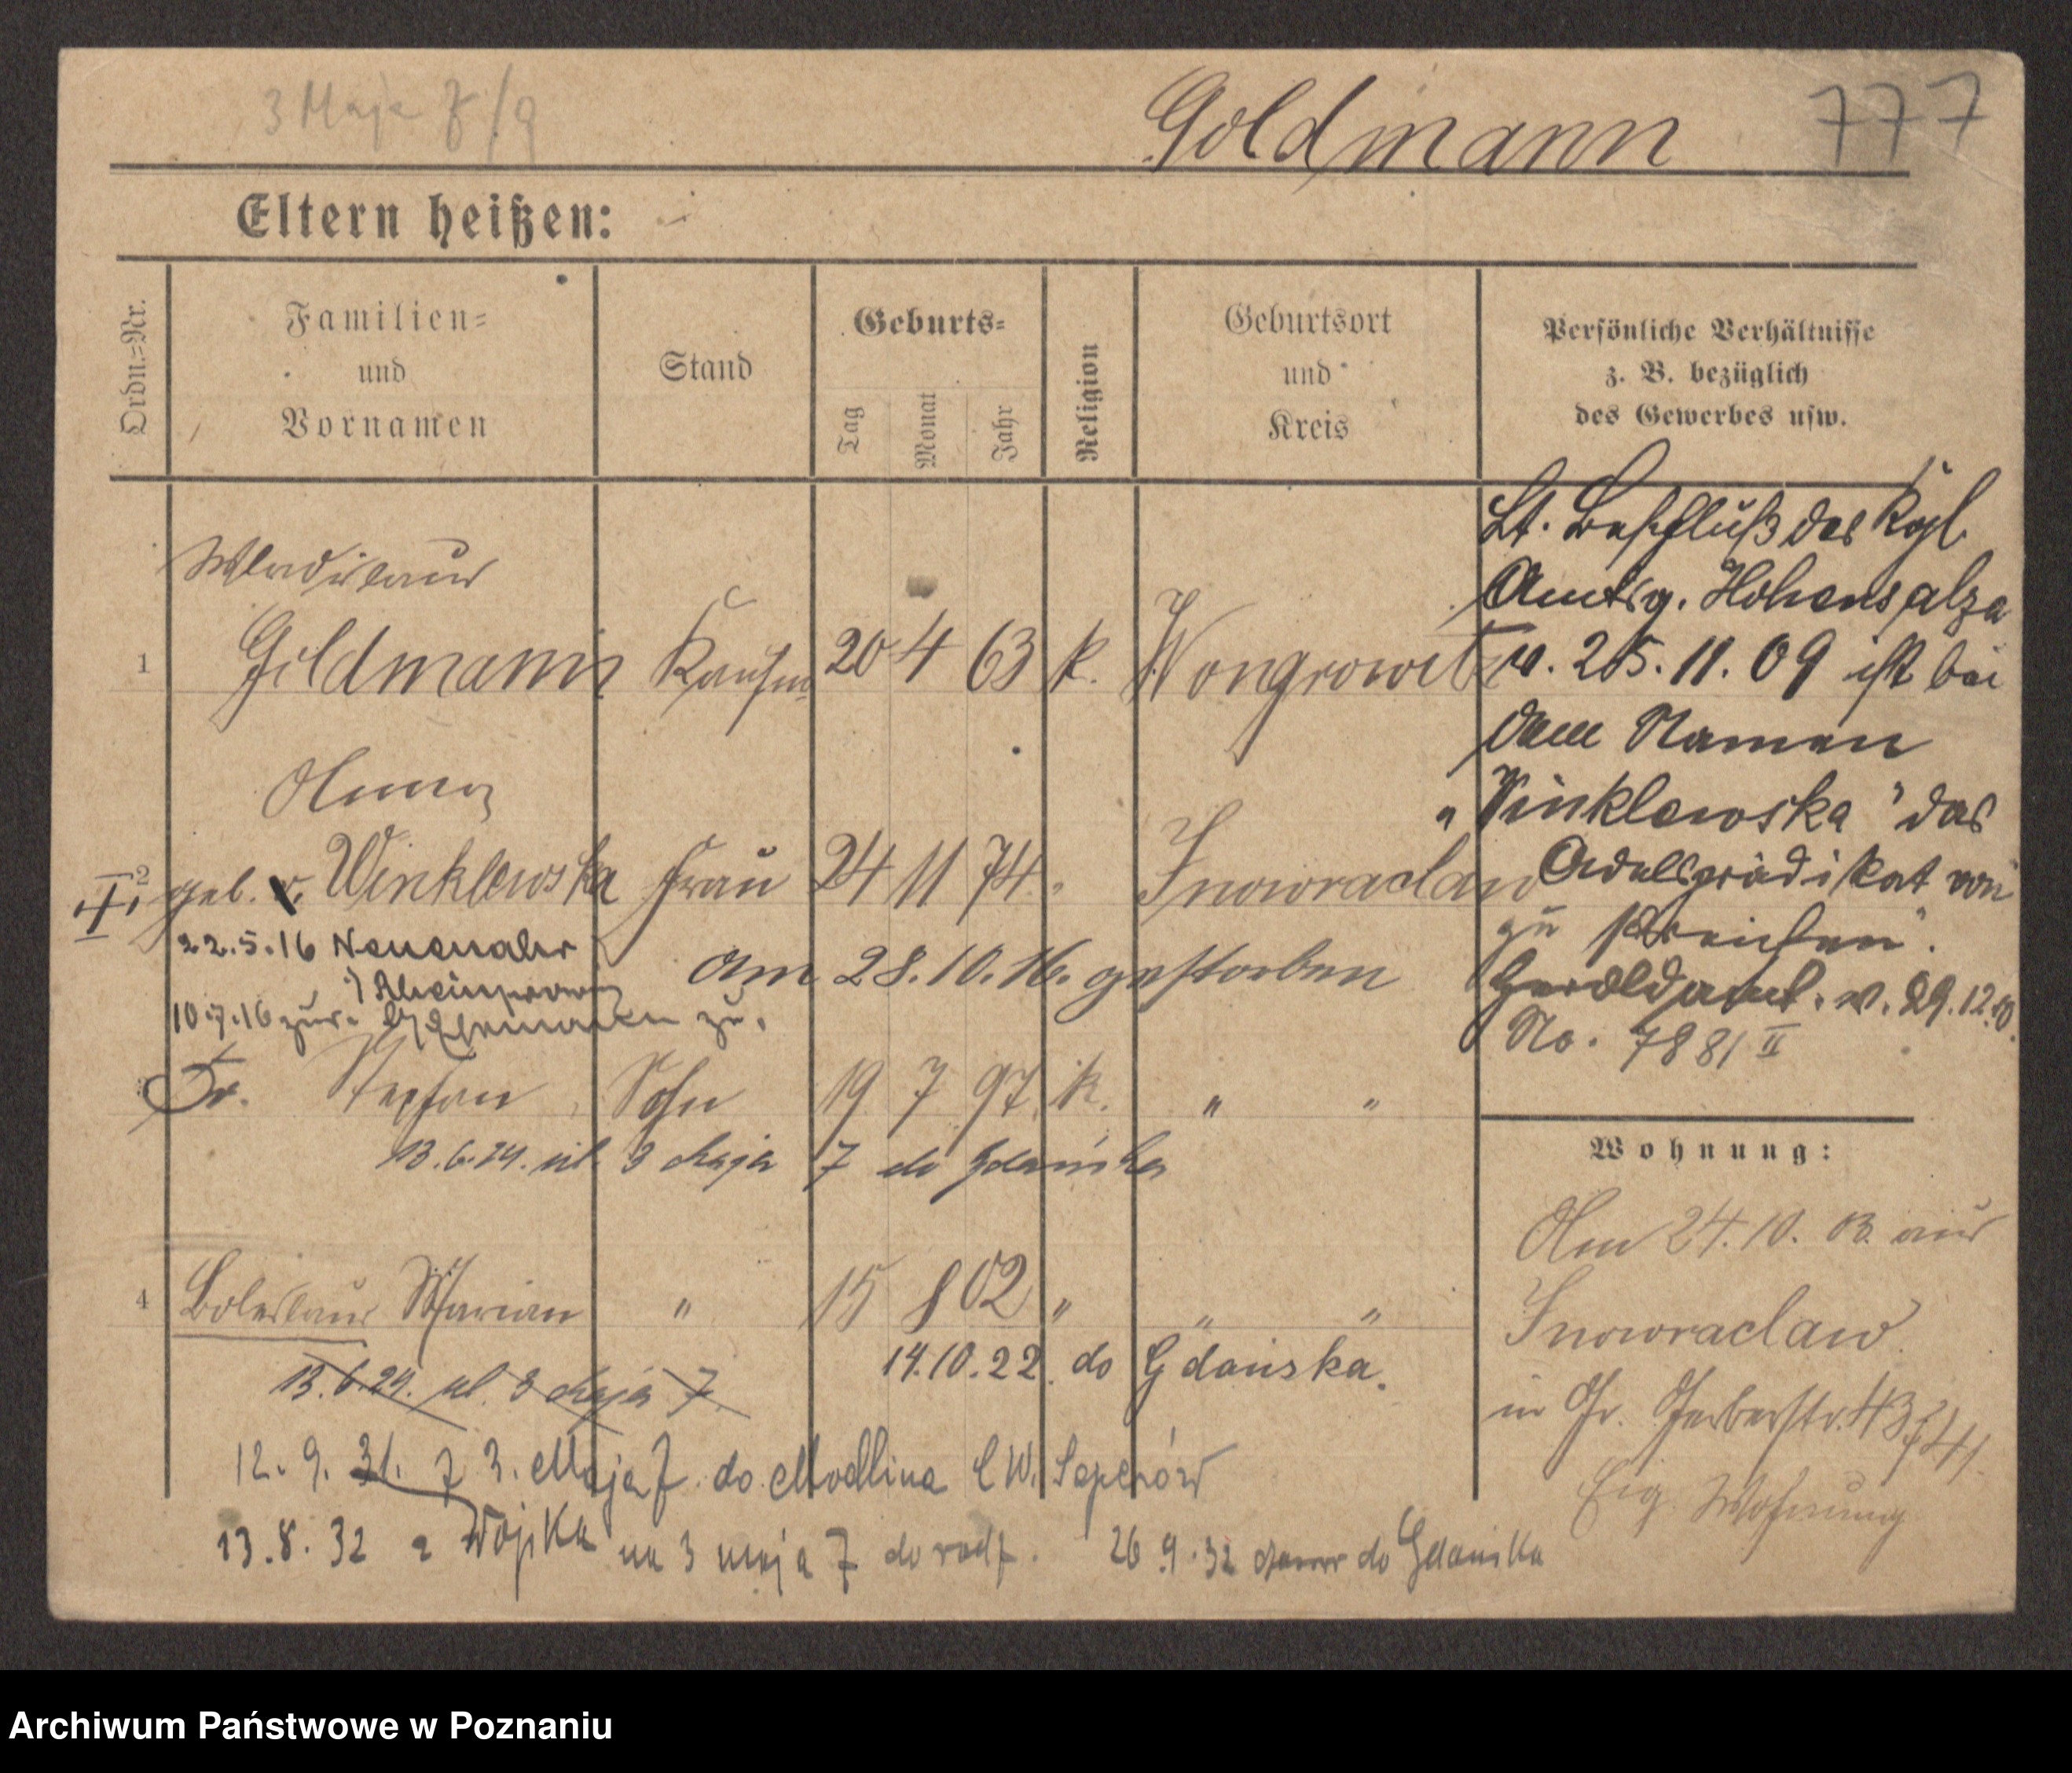 3 Maja 7/9
Goldmann
777
Eltern heißen:
Ordn.=Nr.
Familien=
und
Vornamen
Stand
Geburts=
Tag
Monat
Jahr
Religion
Geburtsort
und
Kreis
Persönliche Verhältnisse
z. B. bezüglich
des Gewerbes usw.
Wladislaus
1 Goldmann Kaufm. 20 4 63 k. Wongrowitz
Anna
2 geb. v. Winklewska Frau 24 11 74 " Inowraclaw
22.5.16 Neuenahr
am 28.10.16. gestorben
10.7.16 zur. zu.
Dr. Stephan Sohn 19 7 97 k. " "
13.6.29. ul. 3 Maja 7 do Gdańska
4 Boleslaus Marian " 15 8 02 " " "
14.10.22. do Gdańska.
13.6.29. ul. 3 Maja 7.
12. 9. 31. z 3. Maja 7. do Modlina C.W. Saperów
13.8.32 z Wojska na 3 maja 7 do rodz.
26 9.32 do Gdańska
Lt. Beschluß des Kgl.
Amtsg. Hohensalza
v. 25.11.09 ist bei
dem Namen
„Winklewska" das
Adelsprädikat von
zu streichen".
Heroldsamt. v. 29.12.10.
No. 7881 II
Wohnung:
Am 24.10. 03. aus
Inowraclaw.
in Gr. Gerberstr. 43
Eig. Wohnung